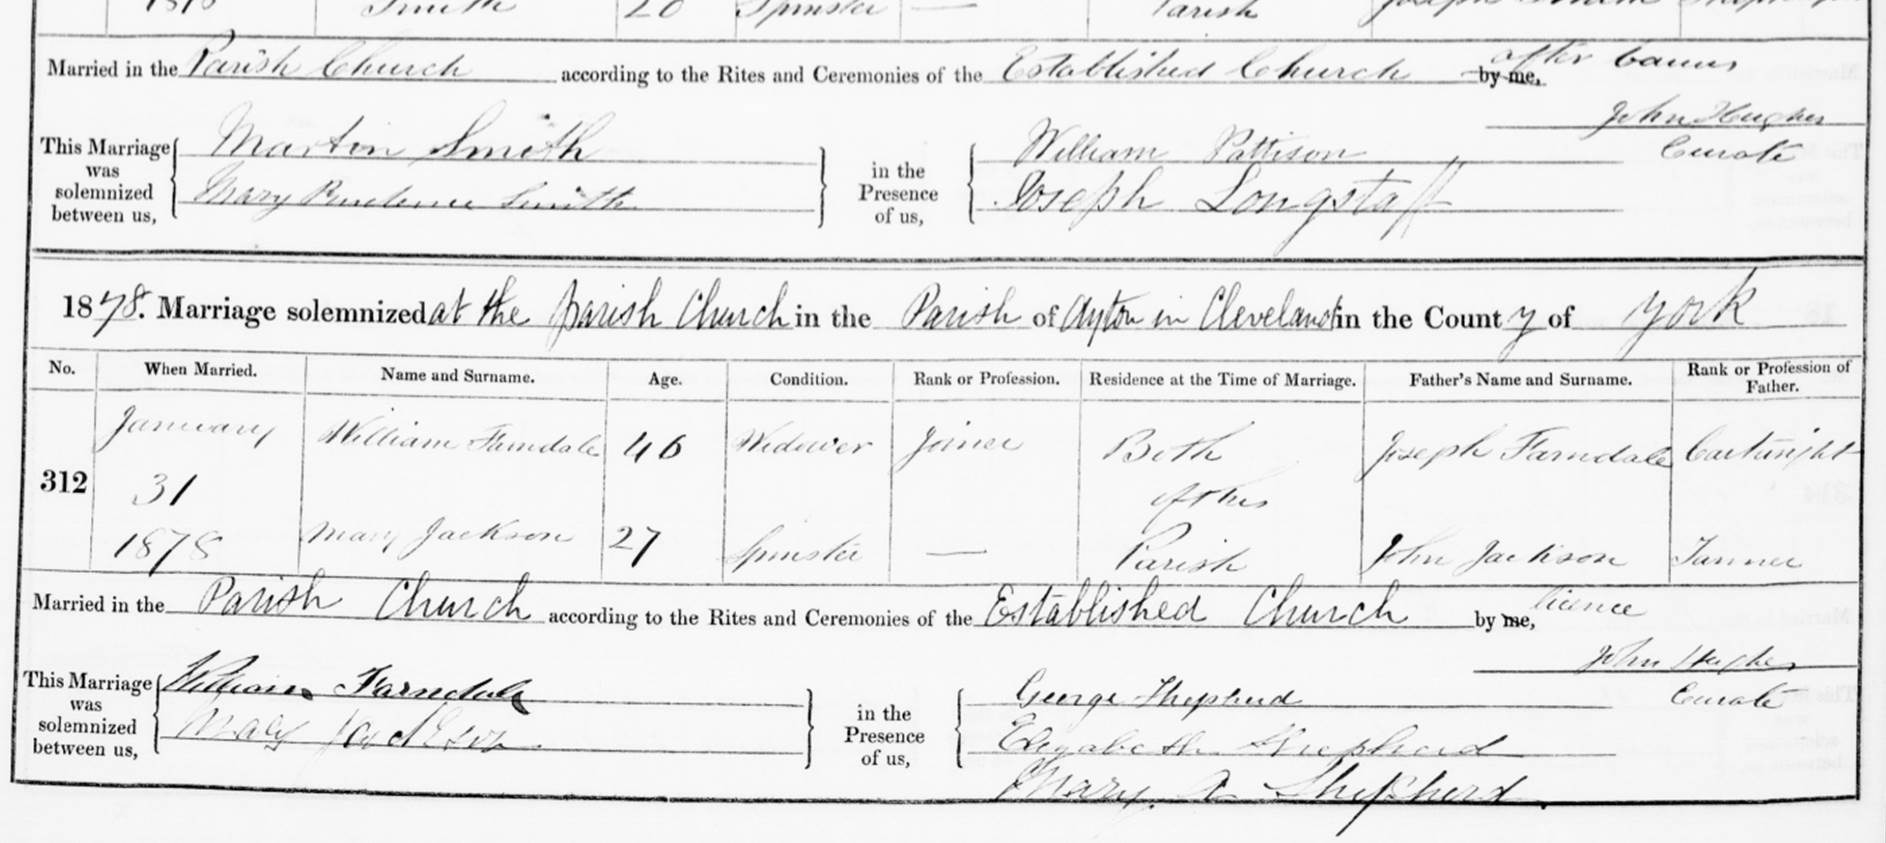 Smith 20 Spinster — Parish
Married in the Parish Church according to the Rites and Ceremonies of the Established Church by me, after banns
John Hughes
Curate
This Marriage was solemnized between us, Martin Smith
Mary Prudence Smith
in the Presence of us, William Pattison
Joseph Longstaff
1878. Marriage solemnized at the Parish Church in the Parish of Ayton in Cleveland in the County of York
No. When Married. Name and Surname. Age. Condition. Rank or Profession. Residence at the Time of Marriage. Father's Name and Surname. Rank or Profession of Father.
January William Farndale 46 Widower Joiner Both Joseph Farndale Cartwright
312 31 of this
1878 Mary Jackson 27 Spinster — Parish John Jackson Tanner
Married in the Parish Church according to the Rites and Ceremonies of the Established Church by me, licence
John Hughes
Curate
This Marriage was solemnized between us, William Farndale
Mary Jackson
in the Presence of us, George Shepherd
Elizabeth Shepherd
Mary A Shepherd